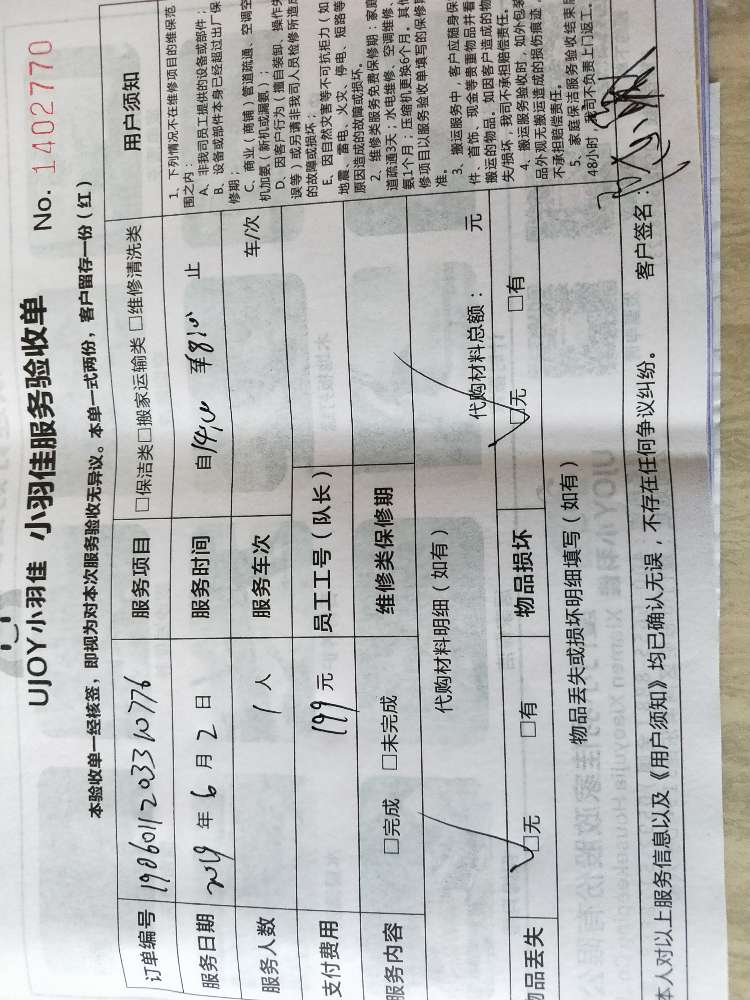 UJOY小羽佳 小羽佳服务验收单 No. 1402770
本验收单一经核签，即视为对本次服务验收无异议。本单一式两份，客户留存一份（红）
订单编号 19060112033310776 服务项目 □保洁类□搬家运输类 □维修清洗类
服务日期 2019 年 6 月 2 日 服务时间 自14:00 至8:00 止
服务人数 1 人 服务车次 车/次
支付费用 199 元 员工工号（队长）
服务内容 □完成 □未完成 维修类保修期
代购材料明细（如有） 代购材料总额： 元
物品丢失 □无 □有 物品损坏 □无 □有
物品丢失或损坏明细填写（如有）
本人对以上服务信息以及《用户须知》均已确认无误，不存在任何争议纠纷。 客户签名：
用户须知
1、下列情况不在维修项目的维保范
围之内：
A、非我司员工提供的设备或部件；
B、设备或部件本身已经超过出厂保
修期；
C、商业（商铺）管道疏通、空调空
机加氨（新机或漏氨）；
D、因客户行为（擅自装卸、操作失
误等）或另请非我司人员检修所造成
的故障或损坏；
E、因自然灾害等不可抗拒力（如
地震、雷电、火灾、停电、短路等
原因造成的故障或损坏。
2、维修类服务免费保修期：家庭
道疏通3天；水电维修、空调维修、
氨1个月；压缩机更换6个月，其他
修项目以服务验收单填写的保修期
准。
3、搬运服务中，客户应随身保
件、首饰、现金等贵重物品并看
搬运的物品。如因客户造成的物
失/损坏，我司不承担赔偿责任。
4、搬运服务验收时，如外包装
品外观无搬运造成的损伤痕迹
不承担赔偿责任。
5、家庭保洁服务验收结束后
48小时，我司不负责上门返工。